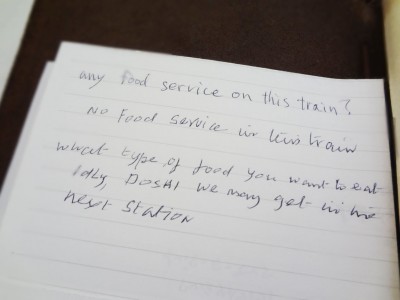 any food service on this train?
No Food Service in this train
what type of food you want to eat
Idly, DOSAI we may get in the
next Station